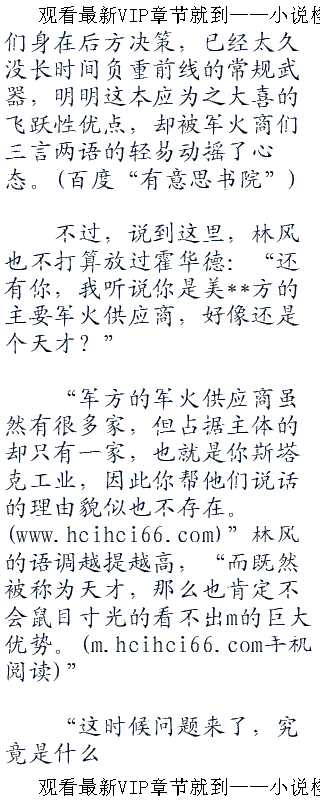 观看最新VIP章节就到——小说楼
们身在后方决策，已经太久
没长时间负重前线的常规武
器，明明这本应为之大喜的
飞跃性优点，却被军火商们
三言两语的轻易动摇了心
态。(百度“有意思书院”)
不过，说到这里，林风
也不打算放过霍华德：“还
有你，我听说你是美**方的
主要军火供应商，好像还是
个天才？”
“军方的军火供应商虽
然有很多家，但占据主体的
却只有一家，也就是你斯塔
克工业，因此你帮他们说话
的理由貌似也不存在。
(www.hcihci66.com)”林风
的语调越提越高，“而既然
被称为天才，那么也肯定不
会鼠目寸光的看不出m的巨大
优势。(m.hcihci66.com手机
阅读)”
“这时候问题来了，究
竟是什么
观看最新VIP章节就到——小说